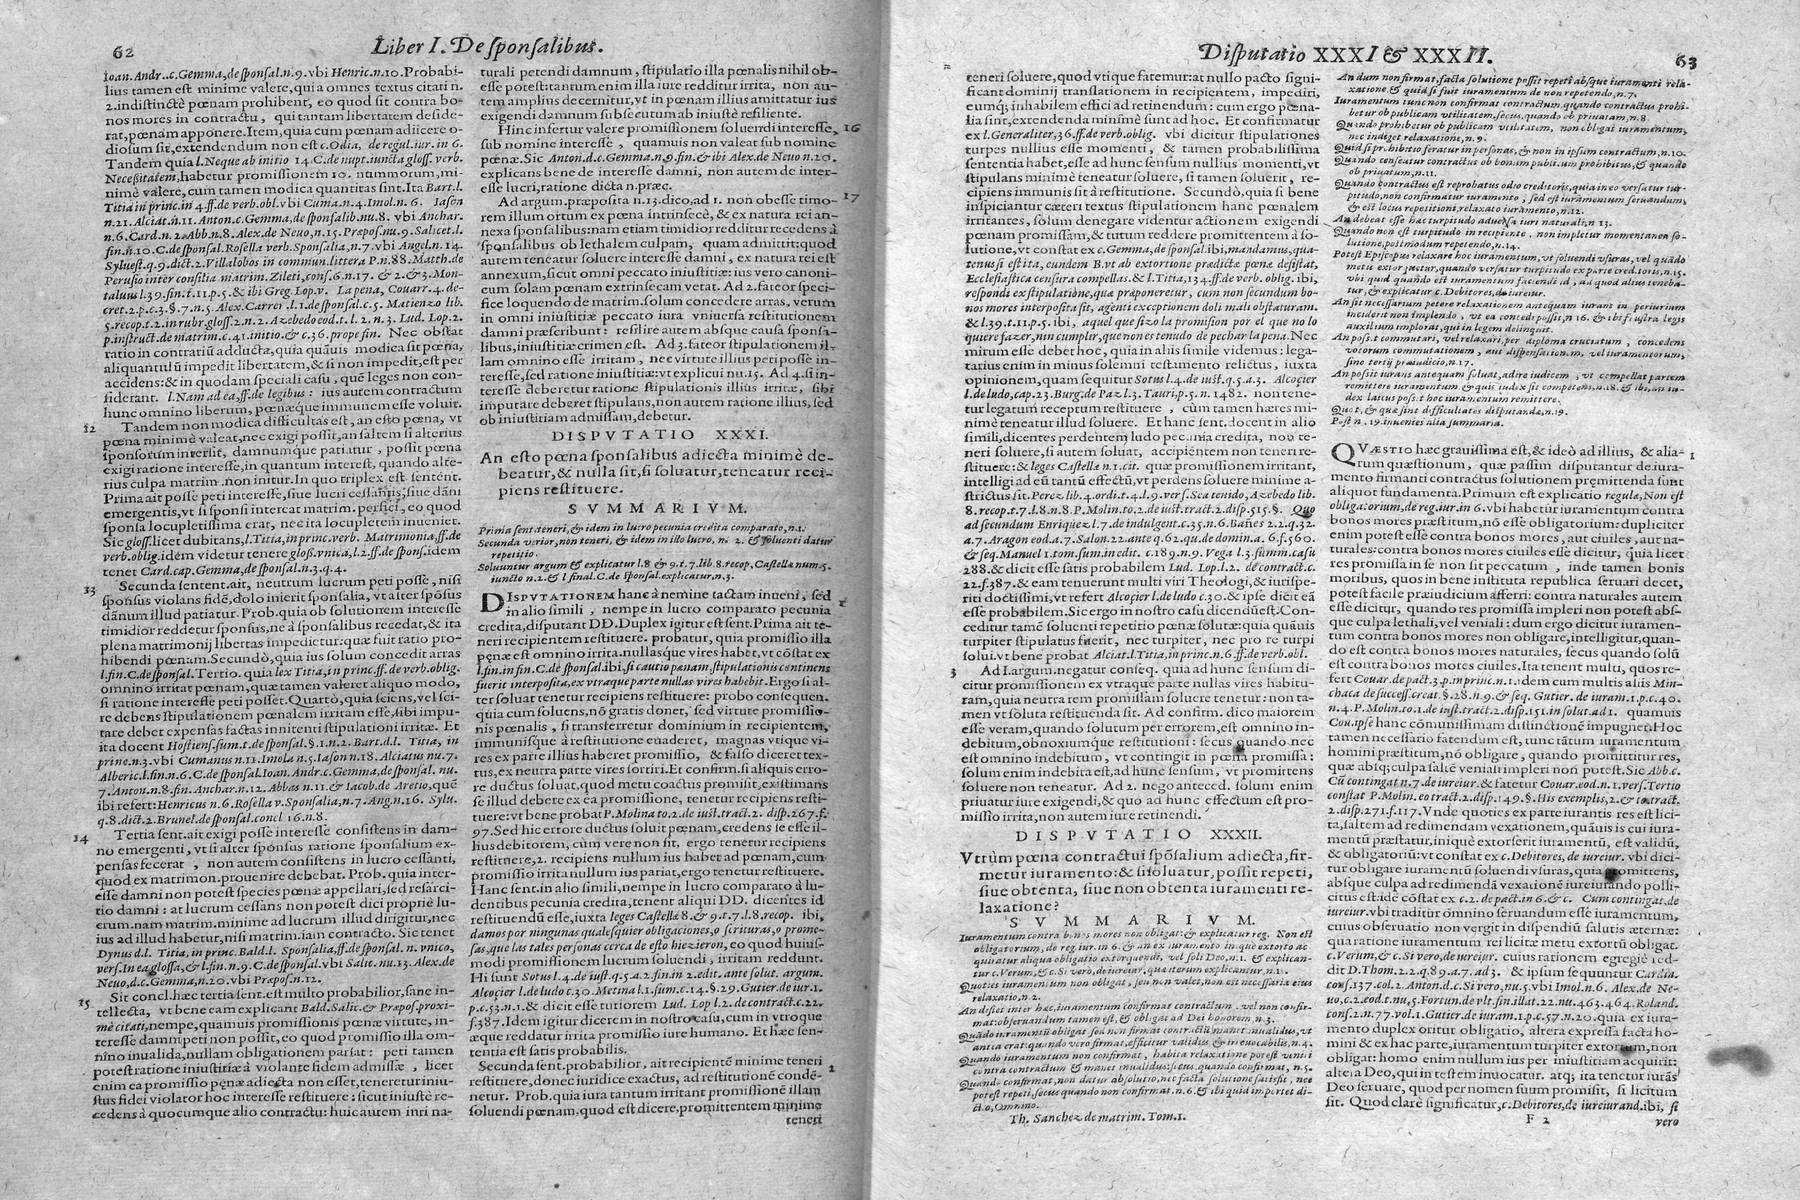 62
Liber I. De sponsalibus.
Ioan. Andr..c. Gemma, de sponsal.n.9. vbi Henric.n.10. Probabi-
lius tamen est minime valere, quia omnes textus citati n.
2. indistinctè pœnam prohibent, eo quod sit contra bo-
nos mores in contractu, qui tantam libertatem deside-
rat, pœnam apponere. Item, quia cum pœnam adiicere o-
diosum sit, extendendum non est c. Odia, de regul. iur. in 6.
Tandem quia l. Neque ab initio 14. C. de nupt. iuncta gloss. verb.
Necessitatem, habetur promissionem 10. nummorum, mi-
nimè valere, cum tamen modica quantitas sint. Ita Bart. l.
Titia in princ. in 4. ff. de verb. obl. vbi Cuma. n. 4. Imol. n. 6. Iason
n. 21. Alciat. n. 11. Anton. c. Gemma, de sponsalib. nu. 8. vbi Anchar.
n. 6. Card. n. 2. Abb. n. 8. Alex. de Neuo, n. 15. Præpos. nu. 9. Salicet. l.
fin. n. 10. C. de sponsal. Rosella verb. Sponsalia, n. 7. vbi Angel. n. 14.
Syluest. q. 9. dict. 2. Villalobos in commun. littera P. n. 88. Matth. de
Perusio inter consilia matrim. Zileti, cons. 6. n. 17. & 2. & 3. Mon-
taluus l. 39. fin. t. 11. p. 5. & ibi Greg. Lop. v. La pena, Couar. 4. de-
cret. 2. p. c. 3. §. 7. n. 5. Alex. Carrer. l. 1. de sponsal. c. 5. Matienzo lib.
5. recop. t. 2. in rubr. gloss. 2. n. 2. Azebedo eod. t. l. 2. n. 3. Lud. Lop. 2.
p. instruct. de matrim. c. 41. initio. & c. 36. prope fin. Nec obstat
ratio in contrariũ adducta, quia quãuis modica sit pœna,
aliquantulũ impedit libertatem, & si non impedit, est per
accidens: & in quodam speciali casu, quẽ leges non con-
siderant. l. Nam ad ea, ff. de legibus: ius autem contractum
hunc omnino liberum, pœnæque immunem esse voluit.
12 Tandem non modica difficultas est, an esto pœna, vt
pœna minimè valeat, nec exigi possit, an saltem si alterius
sponsorum intersit, damnumque patiatur, possit pœna
exigi ratione interesse, in quantum interest, quando alte-
rius culpa matrim. non initur. In quo triplex est sentent.
Prima ait posse peti interesse, siue lucri cessantis, siue dãni
emergentis, vt si sponsi intercat matrim. perfici, eo quod
sponsa locupletissima erat, nec ita locupletem inueniet.
Sic gloss. licet dubitans, l. Titia, in princ. verb. Matrimonia, ff. de
verb. oblig. idem videtur tenere glos. vnica, l. 2. ff. de spons. idem
tenet Card. cap. Gemma, de sponsal. n. 3. q. 4.
13 Secunda sentent. ait, neutrum lucrum peti posse, nisi
sponsus violans fidẽ, dolo inierit sponsalia, vt alter spõsus
dãnum illud patiatur. Prob. quia ob solutionem interesse
timidior reddetur sponsus, ne à sponsalibus recedat, & ita
plena matrimonij libertas impedietur: quæ fuit ratio pro-
hibendi pœnam. Secundò, quia ius solum concedit arras
l. fin. C. de sponsal. Tertio. quia lex Titia, in princ. ff. de verb. oblig.
omnino irritat pœnam, quæ tamen valeret aliquo modo,
si ratione interesse peti posset. Quartò, quia sciens, vel sci-
re debens stipulationem pœnalem irritam esse, sibi impu-
tare debet expensas factas innitenti stipulationi irritæ. Et
ita docent Hostiens. sum. t. de sponsal. §. 1. n. 2. Bart. d. l. Titia, in
princ. n. 3. vbi Cumanus n. 11. Imola n. 5. Iason n. 18. Alciatus nu. 7.
Alberic. l. fin. n. 6. C. de sponsal. Ioan. Andr. c. Gemma, de sponsal. nu.
7. Anton. n. 8. fin. Anchar. n. 12. Abbas n. 11. & Iacob. de Aretio, quẽ
ibi refert: Henricus n. 6. Rosella v. Sponsalia, n. 7. Ang. n. 16. Sylu.
q. 8. dict. 2. Brunel. de sponsal. concl. 16. n. 8.
14 Tertia sent. ait exigi posse interesse consistens in dam-
no emergenti, vt si alter sponsus ratione sponsalium ex-
pensas fecerat, non autem consistens in lucro cessanti,
quod ex matrimon. prouenire debebat. Prob. quia inter-
esse damni non potest species pœnæ appellari, sed resarci-
tio damni: at lucrum cessans non potest dici propriè lu-
crum. nam matrim. minime ad lucrum illud dirigitur, nec
ius ad illud habetur, nisi matrim. iam contracto. Sic tenet
Dynus d. l. Titia, in princ. Bald. l. Sponsalia, ff. de sponsal. n. vnico,
vers. In ea glossa, & l. fin. n. 9. C. de sponsal. vbi Salic. nu. 13. Alex. de
Neuo, d. c. Gemma, n. 20. vbi Præpos. n. 12.
15 Sit concl. hæc tertia sent. est multo probabilior, sane in-
tellecta, vt bene eam explicant Bald. Salic. & Præpos. proxi-
mè citati, nempe, quamuis promissionis pœnæ virtute, in-
teresse damni peti non possit, eo quod promissio illa om-
nino inualida, nullam obligationem pariat: peti tamen
potest ratione iniustitiæ à violante fidem admissæ, licet
enim ea promissio pęnæ adiecta non esset, teneretur iniu-
stus fidei violator hoc interesse restituere: sicut iniustè re-
cedens à quocumque alio contractu: huic autem iuri na-
turali petendi damnum, stipulatio illa pœnalis nihil ob-
esse potest: tantum enim illa iure redditur irrita, non au-
tem amplius decernitur, vt in pœnam illius amittatur ius
exigendi damnum subsecutum ab iniustè resiliente.
16 Hinc infertur valere promissionem soluendi interesse,
sub nomine interesse, quamuis non valeat sub nomine
pœnæ. Sic Anton. d. c. Gemma. n. 9. fin. & ibi Alex. de Neuo n. 20.
explicans bene de interesse damni, non autem de inter-
esse lucri, ratione dicta n. præc.
17 Ad argum. præposita n. 13. dico, ad 1. non obesse timo-
rem illum ortum ex pœna intrinsecè, & ex natura rei an-
nexa sponsalibus: nam etiam timidior redditur recedens à
sponsalibus ob lethalem culpam, quam admittit: quod
autem teneatur soluere interesse damni, ex natura rei est
annexum, sicut omni peccato iniustitiæ: ius vero canoni-
cum solam pœnam extrinsecam vetat. Ad 2. fateor speci-
fice loquendo de matrim. solum concedere arras, verum
in omni iniustitiæ peccato iura vniuersa restitutionem
damni præscribunt: resilire autem absque causa sponsa-
libus, iniustitiæ crimen est. Ad 3. fateor stipulationem il-
lam omnino esse irritam, nec virtute illius peti posse in-
teresse, sed ratione iniustitiæ: vt explicui nu. 15. Ad 4. si in-
teresse deberetur ratione stipulationis illius irritæ, sibi
imputare deberet stipulans, non autem ratione illius, sed
ob iniustitiam admissam, debetur.
DISPVTATIO XXXI.
An esto pœna sponsalibus adiecta minimè de-
beatur, & nulla sit, si soluatur, teneatur reci-
piens restituere.
SVMMARIVM.
Prima sent. teneri, & idem in lucro pecunia credita comparato, n. 1.
Secunda verior, non teneri, & idem in illo lucro, n. 2. & soluenti datur
repetitio.
Soluuntur argum. & explicatur l. 8 & 9. t. 7. lib. 8. recop. Castellæ num. 5.
iuncto n. 2. & l final. C. de sponsal. explicatur, n. 3.
1 DISPVTATIONEM hanc à nemine tactam inueni, sed
in alio simili, nempe in lucro comparato pecunia
credita, disputant DD. Duplex igitur est sent. Prima ait te-
neri recipientem restituere. probatur, quia promissio illa
pęnæ est omnino irrita. nullasque vires habet, vt cõstat ex
l. fin. in fin. C. de sponsal. ibi, si cautio pœnam, stipulationis continens
fuerit interposita, ex vtraque parte nullas vires habebit. Ergo si al-
ter soluat tenetur recipiens restituere: probo consequen.
quia cum soluens, nõ gratis donet, sed virtute promissio-
nis pœnalis, si transferretur dominium in recipientem,
immunisque à restitutione euaderet, magnas vtique vi-
res ex parte illius haberet promissio, & falso diceret tex-
tus, ex neutra parte vires sortiri. Et confirm. si aliquis erro-
re ductus soluat, quod metu coactus promisit, existimans
se illud debere ex ea promissione, tenetur recipiens resti-
tuere: vt bene probat P. Molina to. 2. de iust. tract. 2. disp. 267. f.
97. Sed hic errore ductus soluit pœnam, credens se esse il-
lius debitorem, cùm vere non sit, ergo tenetur recipiens
restituere, 2. recipiens nullum ius habet ad pœnam, cum
promissio irrita nullum ius pariat, ergo tenetur restituere.
Hanc sent. in alio simili, nempe in lucro comparato à lu-
dentibus pecunia credita, tenent aliqui DD. dicentes id
restituendũ esse, iuxta leges Castellæ 8. & 9. t. 7. l. 8. recop. ibi,
damos por ningunas qualesquier obligaciones, o scrituras, o prome-
sas, que las tales personas cerca de esto hiezieron, eo quod huius-
modi promissionem lucrum soluendi, irritam reddunt.
Hi sunt Sotus l. 4. de iust. q. 5. a. 2. fin. in 2. edit. ante solut. argum.
Alcoçier l. de ludo c. 30. Metina l. 1. sum. c. 14. §. 29. Gutier. de iur. 1.
p. c. 53. n. 1. & dicit esse tutiorem Lud. Lop l. 2. de contract. c. 22.
f. 387. Idem igitur dicerem in nostro casu, cum in vtroque
æque reddatur irrita promissio iure humano. Et hæc sen-
tentia est satis probabilis.
2 Secunda sent. probabilior, ait recipientẽ minime teneri
restituere, donec iuridice exactus, ad restitutionẽ condẽ-
netur. Prob. quia iura tantum irritant promissionẽ illam
soluendi pœnam, quod est dicere, promittentem minime
teneri
Disputatio XXXI & XXXII.
63
teneri soluere, quod vtique fatemur: at nullo pacto signi-
ficant dominij translationem in recipientem, impediri,
eumq; inhabilem effici ad retinendum: cum ergo pœna-
lia sint, extendenda minimè sunt ad hoc. Et confirmatur
ex l. Generaliter, 36. ff. de verb. oblig. vbi dicitur stipulationes
turpes nullius esse momenti, & tamen probabilissima
sententia habet, esse ad hunc sensum nullius momenti, vt
stipulans minimè teneatur soluere, si tamen soluerit, re-
cipiens immunis sit à restitutione. Secundò, quia si bene
inspiciantur cæteri textus stipulationem hanc pœnalem
irritantes, solum denegare videntur actionem exigendi
pœnam promissam, & tutum reddere promittentem à so-
lutione, vt constat ex c. Gemma, de sponsal. ibi, mandamus, qua-
tenus si est ita, eundem B. vt ab extortione prædictæ pœnæ desistat,
Ecclesiastica censura compellas. & l. Titia, 134. ff. de verb. oblig. ibi,
respondi ex stipulatione, quæ proponeretur, cum non secundum bo-
nos mores interposita sit, agenti exceptionem doli mali obstaturam.
& l. 39. t. 11. p. 5. ibi, aquel que fizo la promision por el que no lo
quiere fazer, nin cumplir, que non es tenudo de pechar la pena. Nec
mirum esse debet hoc, quia in aliis simile videmus: lega-
tarius enim in minus solemni testamento relictus, iuxta
opinionem, quam sequitur Sotus l. 4. de iust. q. 5. a. 3. Alcoçier
l. de ludo, cap. 23. Burg. de Paz l. 3. Tauri, p. 5. n. 1482. non tene-
tur legatum receptum restituere, cùm tamen hæres mi-
nimè teneatur illud soluere. Et hanc sent. docent in alio
simili, dicentes perdentem ludo pecunia credita, non te-
neri soluere, si autem soluat, accipientẽ non teneri re-
stituere: & leges Castellæ n. 1. cit. quæ promissionem irritant,
intelligi ad eũ tantũ effectũ, vt perdens soluere minime a-
strictus sit. Perez lib. 4. ordi. t. 4. l. 9. vers. Sea tenido, Azebedo lib.
8. recop. t. 7. l. 8. n. 8. P. Molin. to. 2. de iust. tract. 2. disp. 515. §. Quo
ad secundum Enriquez l. 7. de indulgent. c. 35. n. 6. Bañes 2. 2. q. 32.
a. 7. Aragon eod. a. 7. Salon. 22. ante q. 62. qu. de domin. a. 6. f. 560.
& seq. Manuel 1. tom. sum. in edit. c. 189. n. 9. Vega l. 3. summ. casu
288. & dicit esse satis probabilem Lud. Lop. l. 2. de contract. c.
22. f. 387. & eam tenuerunt multi viri Theologi, & iurispe-
riti doctissimi, vt refert Alcoçier l. de ludo c. 30. & ipse dicit eã
esse probabilem. Sic ergo in nostro casu dicendũ est. Con-
ceditur tamẽ soluenti repetitio pœnæ solutæ: quia quãuis
turpiter stipulatus fuerit, nec turpiter, nec pro re turpi
solui. vt bene probat Alciat. l. Titia, in princ. n. 6. ff. de verb. obl.
3 Ad I. argum. negatur conseq. quia ad hunc sensum di-
citur promissionem ex vtraque parte nullas vires habitu-
ram, quia neutra tem promissam soluere tenetur: non ta-
men vt soluta restituenda sit. Ad confirm. dico maiorem
esse veram, quando solutum per errorem, est omnino in-
debitum, obnoxiumque restitutioni: secus quando nec
est omnino indebitum, vt contingit in pœna promissa:
solum enim indebita est, ad hunc sensum, vt promittens
soluere non teneatur. Ad 2. nego anteced. solum enim
priuatur iure exigendi, & quo ad hunc effectum est pro-
missio irrita, non autem iure retinendi.
DISPVTATIO XXXII.
Vtrùm pœna contractui spõsalium adiecta, fir-
metur iuramento: & si soluatur, possit repeti,
siue obtenta, siue non obtenta iuramenti re-
laxatione?
SVMMARIVM.
Iuramentum contra bonos mores non obligat: & explicatur reg. Non est
obligatorium, de reg. iur. in 6. & an ex iuramento in que extorto ac
quiratur aliqua obligatio extorquendi, vel soli Deo, n. 1. & explican-
tur c. Verum, & c. Si vero, de iureiur. qua iterum explicantur, n. 1.
Quoties iuramentum non obligat, seu non valet, non est necessaria eius
relaxatio, n. 2.
An distet inter hæc, iuramentum confirmat contractum, vel non confir-
mat: obseruandum tamen est, & obligat ad Dei honorem, n. 3.
Quãdo iuramentũ obligat sed non firmat contractũ, manet inualidus, vt
antea erat: quando vero firmat, efficitur validus, & irreuocabilis, n. 4.
Quando iuramentum non confirmat, habita relaxatione potest veniri
contra contractum & manet inualidus: secus, quando confirmat, n. 5.
Quando confirmat, non datur absolutio, nec facta solutione satisfit, nec
potest repeti: secus quando non confirmat. n. 6. & ibi quid importet di-
ctio, Omnino.
An dum non firmat, facta solutione possit repeti absque iuramenti rela-
xatione, & quid si fuit iuramentum de non repetendo, n. 7.
Iuramentum tunc non confirmat contractum, quando contractus prohi-
betur ob publicam vtilitatem, secus, quando ob priuatam, n. 8.
Quando prohibetur ob publicam vtilitatem, non obligat iuramentum,
nec indiget relaxatione, n. 9.
Quid si prohibitio feratur in personas, & non in ipsum contractum, n. 10.
Quando censeatur contractus ob bonum publicum prohibitus, & quando
ob priuatum, n. 11.
Quando contractus est reprobatus odio creditoris, quia in eo versatur tur-
pitudo, non confirmatur iuramento, sed est iuramentum seruandum,
& est locus repetitioni, relaxato iuramento, n. 12.
An debeat esse hæc turpitudo aduersa iuri naturali, n. 13.
Quando non est turpitudo in recipiente, non impletur momentanea so-
lutione, postmodum repetendo, n. 14.
Potest Episcopus relaxare hoc iuramentum, vt soluendi vsuras, vel quãdo
metu extorquetur, quando versatur turpitudo ex parte creditoris, n. 15.
vbi quid quando est iuramentum faciendi id, ad quod alius teneba-
tur, & explicatur c. Debitores, de iureiur.
An sit necessarium petere relaxationem antequam iurant in periurium
inciderit non implendo, vt ea concedi possit, n. 16. & ibi frustra legis
auxilium implorat, qui in legem delinquit.
An possit commutari, vel relaxari, per diploma cruciatum, concedens
votorum commutationem, aut dispensationem, vel iuramentorum,
sine tertij præiudicio, n. 17.
An possit iurans antequam soluat, adire iudicem, vt compellat partem
remittere iuramentum & quis iudex sit competens, n. 18. & ibi, an iu-
dex laicus possit hoc iuramentum remittere.
Quot, & quæ sint difficultates disputandæ, n. 19.
Post n. 19. inuenies alia summaria.
1 QVÆSTIO hæc grauissima est, & ideò ad illius, & alia-
rum quæstionum, quæ passim disputantur de iura-
mento firmanti contractus solutionem premittenda sunt
aliquot fundamenta. Primum est explicatio regulæ, Non est
obligatorium, de reg. iur. in 6. vbi habetur iuramentum contra
bonos mores præstitum, nõ esse obligatorium: dupliciter
enim potest esse contra bonos mores, aut ciuiles, aut na-
turales: contra bonos mores ciuiles esse dicitur, quia licet
res promissa in se non sit peccatum, inde tamen bonis
moribus, quos in bene instituta republica seruari decet,
potest facile præiudicium afferri: contra naturales autem
esse dicitur, quando res promissa impleri non potest abs-
que culpa lethali, vel veniali: dum ergo dicitur iuramen-
tum contra bonos mores non obligare, intelligitur, quan-
do est contra bonos mores naturales, secus quando solũ
est contra bonos mores ciuiles. Ita tenent multi, quos re-
fert Couar. de pact. 3. p. in princ. n. 1. idem cum multis aliis Min-
chaca de success. creat. §. 28. n. 9. & seq. Gutier. de iuram. 1. p. c. 40.
n. 4. P. Molin. to. 1. de iust. tract. 2. disp. 151. in solut. ad 1. quamuis
Con. ipse hanc cõmunissimam distinctionẽ impugnet. Hoc
tamen necessario fatendum est, tunc tãtum iuramentum
homini præstitum, nõ obligare, quando promittitur res,
quæ absq; culpa saltẽ veniali impleri non potest. Sic Abb. c.
Cũ contingat n. 7. de iureiur. & fatetur Couar. eod. n. 1. vers. Tertio
constat P. Molin. eo tract. 2. disp. 149. §. His exemplis, 2. & to. tract.
2. disp. 271. f. 117. Vnde quoties ex parte iurantis res est lici-
ta, saltem ad redimendam vexationem, quãuis is cui iura-
mentũ præstatur, iniquè extorserit iuramentũ, est validũ,
& obligatoriũ: vt constat ex c. Debitores, de iureiur. vbi dici-
tur obligare iuramentũ soluendi vsuras, quia promittens,
absque culpa ad redimendã vexationẽ iureiurando polli-
citus est: idẽ cõstat ex c. 2. de pact. in 6. & c. Cum contingat, de
iureiur. vbi traditur õmnino seruandum esse iuramentum,
cuius obseruatio non vergit in dispendiũ salutis æternæ:
qua ratione iuramentum rei licitæ metu extortũ obligat.
c. Verum, & c. Si vero, de iureiur. cuius rationem egregiè red-
dit D. Thom. 2. 2. q. 89. a. 7. ad 3. & ipsum sequuntur Cardia.
cons. 137. col. 2. Anton. d. c. Si vero, nu. 5. vbi Imol. n. 6. Alex. de Ne-
uo, c. 2. eod. t. nu. 5. Fortun. de vlt. fin. illat. 22. nu. 463. 464. Roland.
cons. 2. n. 77. vol. 1. Gutier. de iuram. 1. p. c. 57. n. 20. quia ex iura-
mento duplex oritur obligatio, altera expressa facta ho-
mini & ex hac parte, iuramentum turpiter extortum, non
obligat: homo enim nullum ius per iniustitiam acquirit:
altera Deo, qui in testem inuocatur. atq; ita tenetur iurãs
Deo seruare, quod per nomen suum promisit, si licitum
sit. Quod clarè significatur, c. Debitores, de iureiurand. ibi, si
vero
Th. Sanchez de matrim. Tom. 1.
F 2